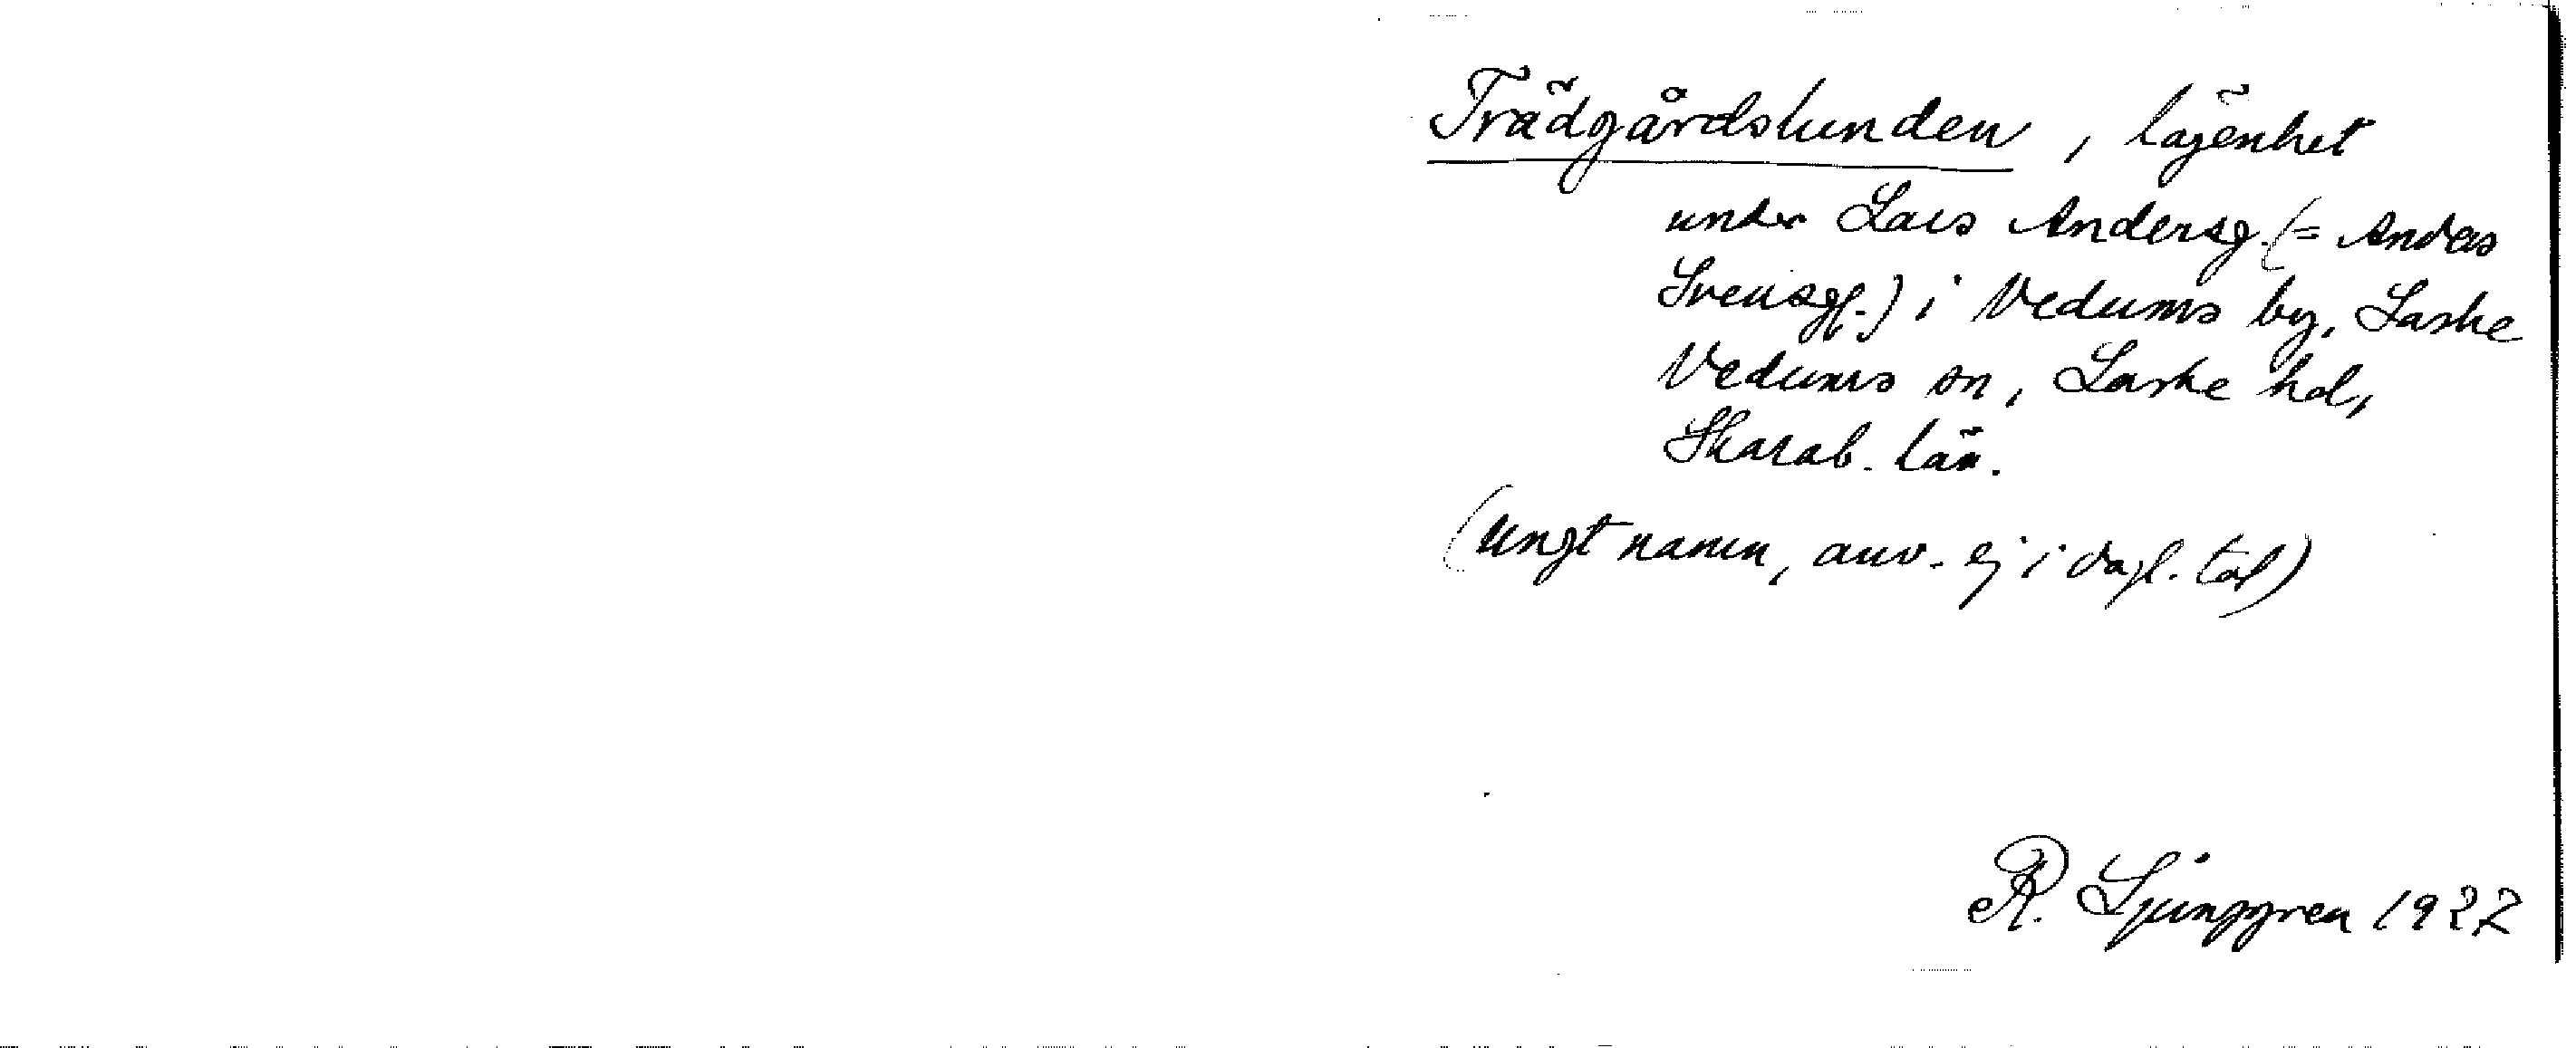 Trädgårdslunden, lägenhet
under Lars Andersg. (= Anders
Svensg.) i Vedums by, Laske
Vedums sn, Laske hd,
Skarab. län.
(Ungt namn, anv. ej i dagl. tal)
R. Ljunggren 1922